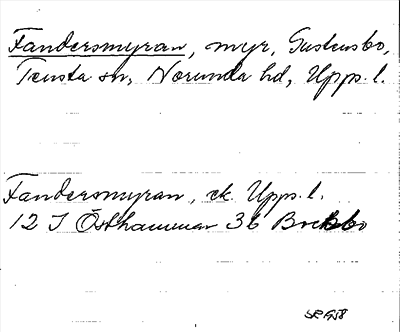 Fandersmyran, myr, Gustusbo,
Tensta sn, Norunda hd, Upps. l.
Fandersmyran, ek. Upps. l.
12 I Östhammar 3b Bockbo